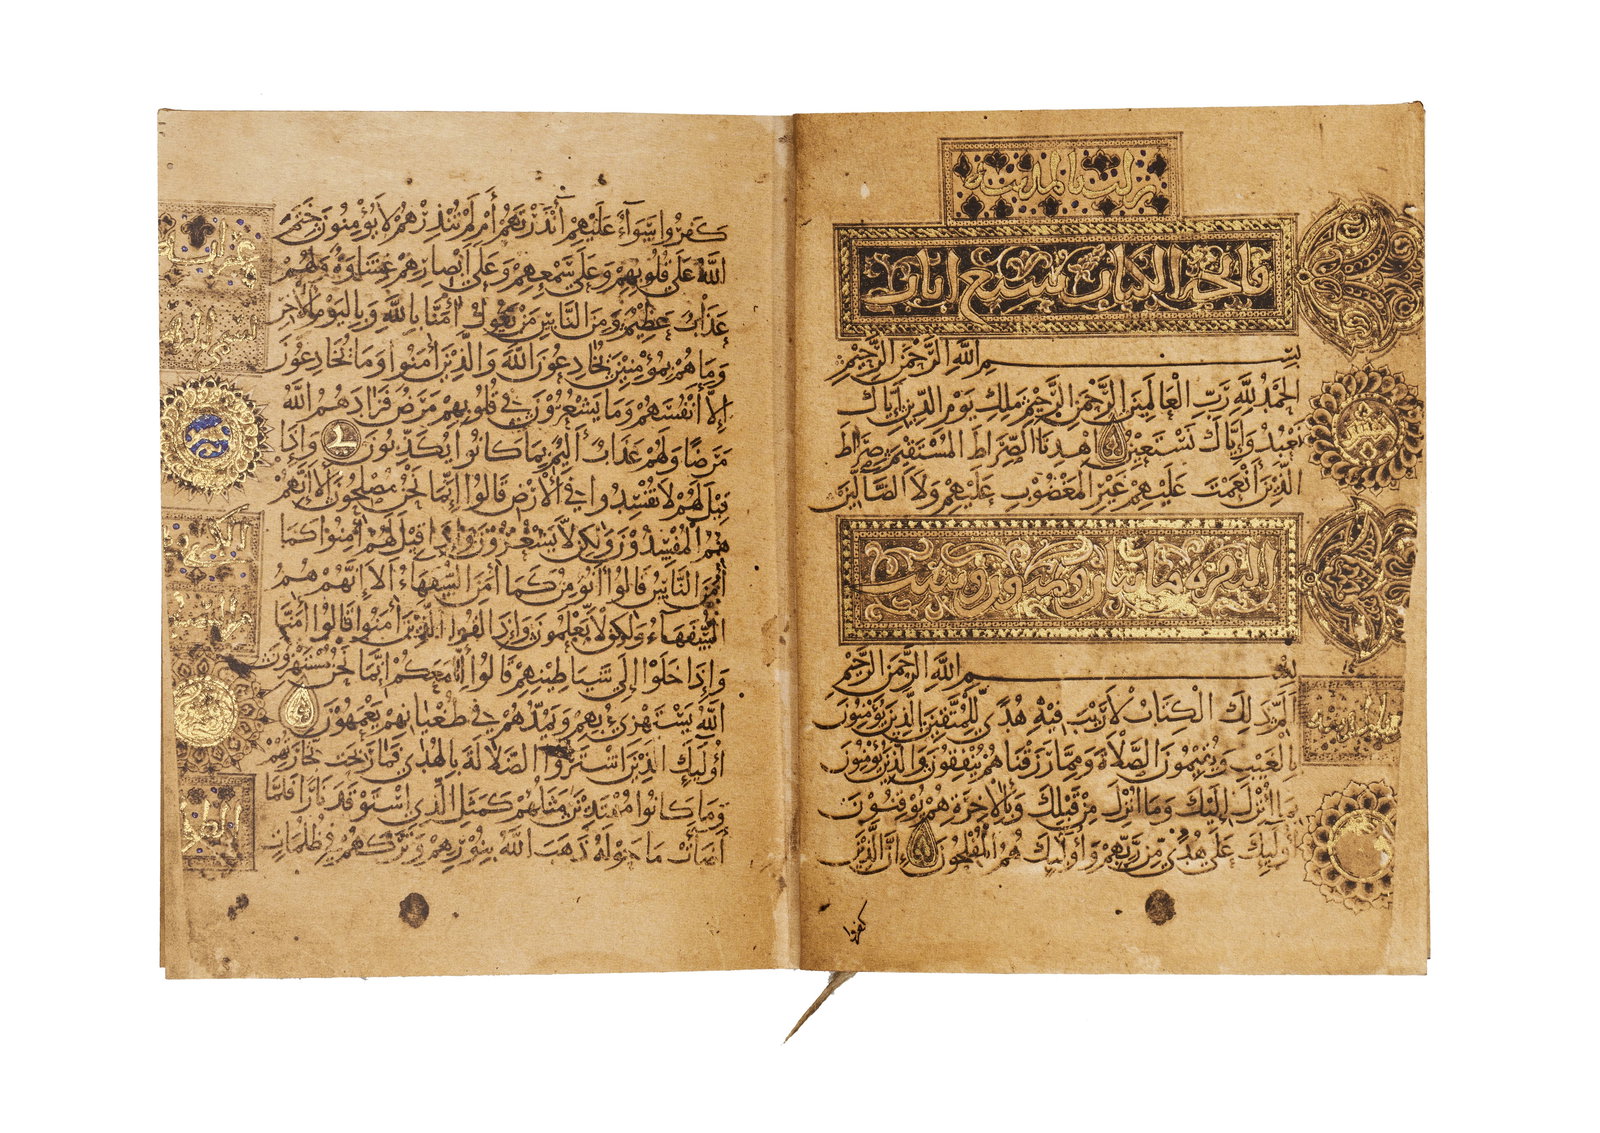 نزلت بالمدينة
فاتحة الكتاب سبع ايات
بِسْمِ اللهِ الرَّحْمَنِ الرَّحِيمِ
الحَمْدُ لِلَّهِ رَبِّ الْعَالَمِينَ الرَّحْمَنِ الرَّحِيمِ مَلِكِ يَوْمِ الدِّينِ إِيَّاكَ
نَعْبُدُ وَإِيَّاكَ نَسْتَعِينُ اهْدِنَا الصِّرَاطَ الْمُسْتَقِيمَ صِرَاطَ
الَّذِينَ أَنْعَمْتَ عَلَيْهِمْ غَيْرِ الْمَغْضُوبِ عَلَيْهِمْ وَلَا الضَّالِّينَ
البقرة مايتان وثمانون وست
بِسْمِ اللهِ الرَّحْمَنِ الرَّحِيمِ
الم ذَلِكَ الْكِتَابُ لَا رَيْبَ فِيهِ هُدًى لِلْمُتَّقِينَ الَّذِينَ يُؤْمِنُونَ
بِالْغَيْبِ وَيُقِيمُونَ الصَّلَاةَ وَمِمَّا رَزَقْنَاهُمْ يُنْفِقُونَ وَالَّذِينَ يُؤْمِنُونَ
بِمَا أُنْزِلَ إِلَيْكَ وَمَا أُنْزِلَ مِنْ قَبْلِكَ وَبِالْآخِرَةِ هُمْ يُوقِنُونَ
أُولَئِكَ عَلَى هُدًى مِنْ رَبِّهِمْ وَأُولَئِكَ هُمُ الْمُفْلِحُونَ إِنَّ الَّذِينَ
كفروا
كَفَرُوا سَوَاءٌ عَلَيْهِمْ أَأَنْذَرْتَهُمْ أَمْ لَمْ تُنْذِرْهُمْ لَا يُؤْمِنُونَ خَتَمَ
اللَّهُ عَلَى قُلُوبِهِمْ وَعَلَى سَمْعِهِمْ وَعَلَى أَبْصَارِهِمْ غِشَاوَةٌ وَلَهُمْ
عَذَابٌ عَظِيمٌ وَمِنَ النَّاسِ مَنْ يَقُولُ آمَنَّا بِاللَّهِ وَبِالْيَوْمِ الْآخِرِ
وَمَا هُمْ بِمُؤْمِنِينَ يُخَادِعُونَ اللَّهَ وَالَّذِينَ آمَنُوا وَمَا يُخَادِعُونَ
إِلَّا أَنْفُسَهُمْ وَمَا يَشْعُرُونَ فِي قُلُوبِهِمْ مَرَضٌ فَزَادَهُمُ اللَّهُ
مَرَضًا وَلَهُمْ عَذَابٌ أَلِيمٌ بِمَا كَانُوا يُكَذِّبُونَ وَإِذَا
قِيلَ لَهُمْ لَا تُفْسِدُوا فِي الْأَرْضِ قَالُوا إِنَّمَا نَحْنُ مُصْلِحُونَ أَلَا إِنَّهُمْ
هُمُ الْمُفْسِدُونَ وَلَكِنْ لَا يَشْعُرُونَ وَإِذَا قِيلَ لَهُمْ آمِنُوا كَمَا
آمَنَ النَّاسُ قَالُوا أَنُؤْمِنُ كَمَا آمَنَ السُّفَهَاءُ أَلَا إِنَّهُمْ هُمُ
السُّفَهَاءُ وَلَكِنْ لَا يَعْلَمُونَ وَإِذَا لَقُوا الَّذِينَ آمَنُوا قَالُوا آمَنَّا
وَإِذَا خَلَوْا إِلَى شَيَاطِينِهِمْ قَالُوا إِنَّا مَعَكُمْ إِنَّمَا نَحْنُ مُسْتَهْزِئُونَ
اللَّهُ يَسْتَهْزِئُ بِهِمْ وَيَمُدُّهُمْ فِي طُغْيَانِهِمْ يَعْمَهُونَ
أُولَئِكَ الَّذِينَ اشْتَرَوُا الضَّلَالَةَ بِالْهُدَى فَمَا رَبِحَتْ تِجَارَتُهُمْ
وَمَا كَانُوا مُهْتَدِينَ مَثَلُهُمْ كَمَثَلِ الَّذِي اسْتَوْقَدَ نَارًا فَلَمَّا
أَضَاءَتْ مَا حَوْلَهُ ذَهَبَ اللَّهُ بِنُورِهِمْ وَتَرَكَهُمْ فِي ظُلُمَاتٍ